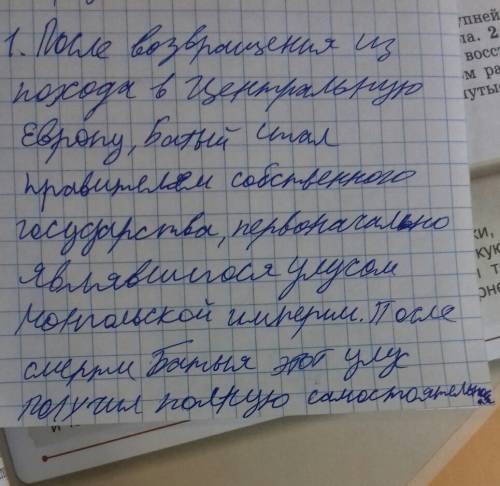 1. После возвращения из
похода в Центральную
Европу, Батый стал
правителем собственного
государства, первоначально
являвшегося улусом
Монгольской империи. После
смерти Батыя этот улус
получил полную самостоятельность
упней
ла. 2
восст
ом ра
нутые
ки,
кую
т
рне